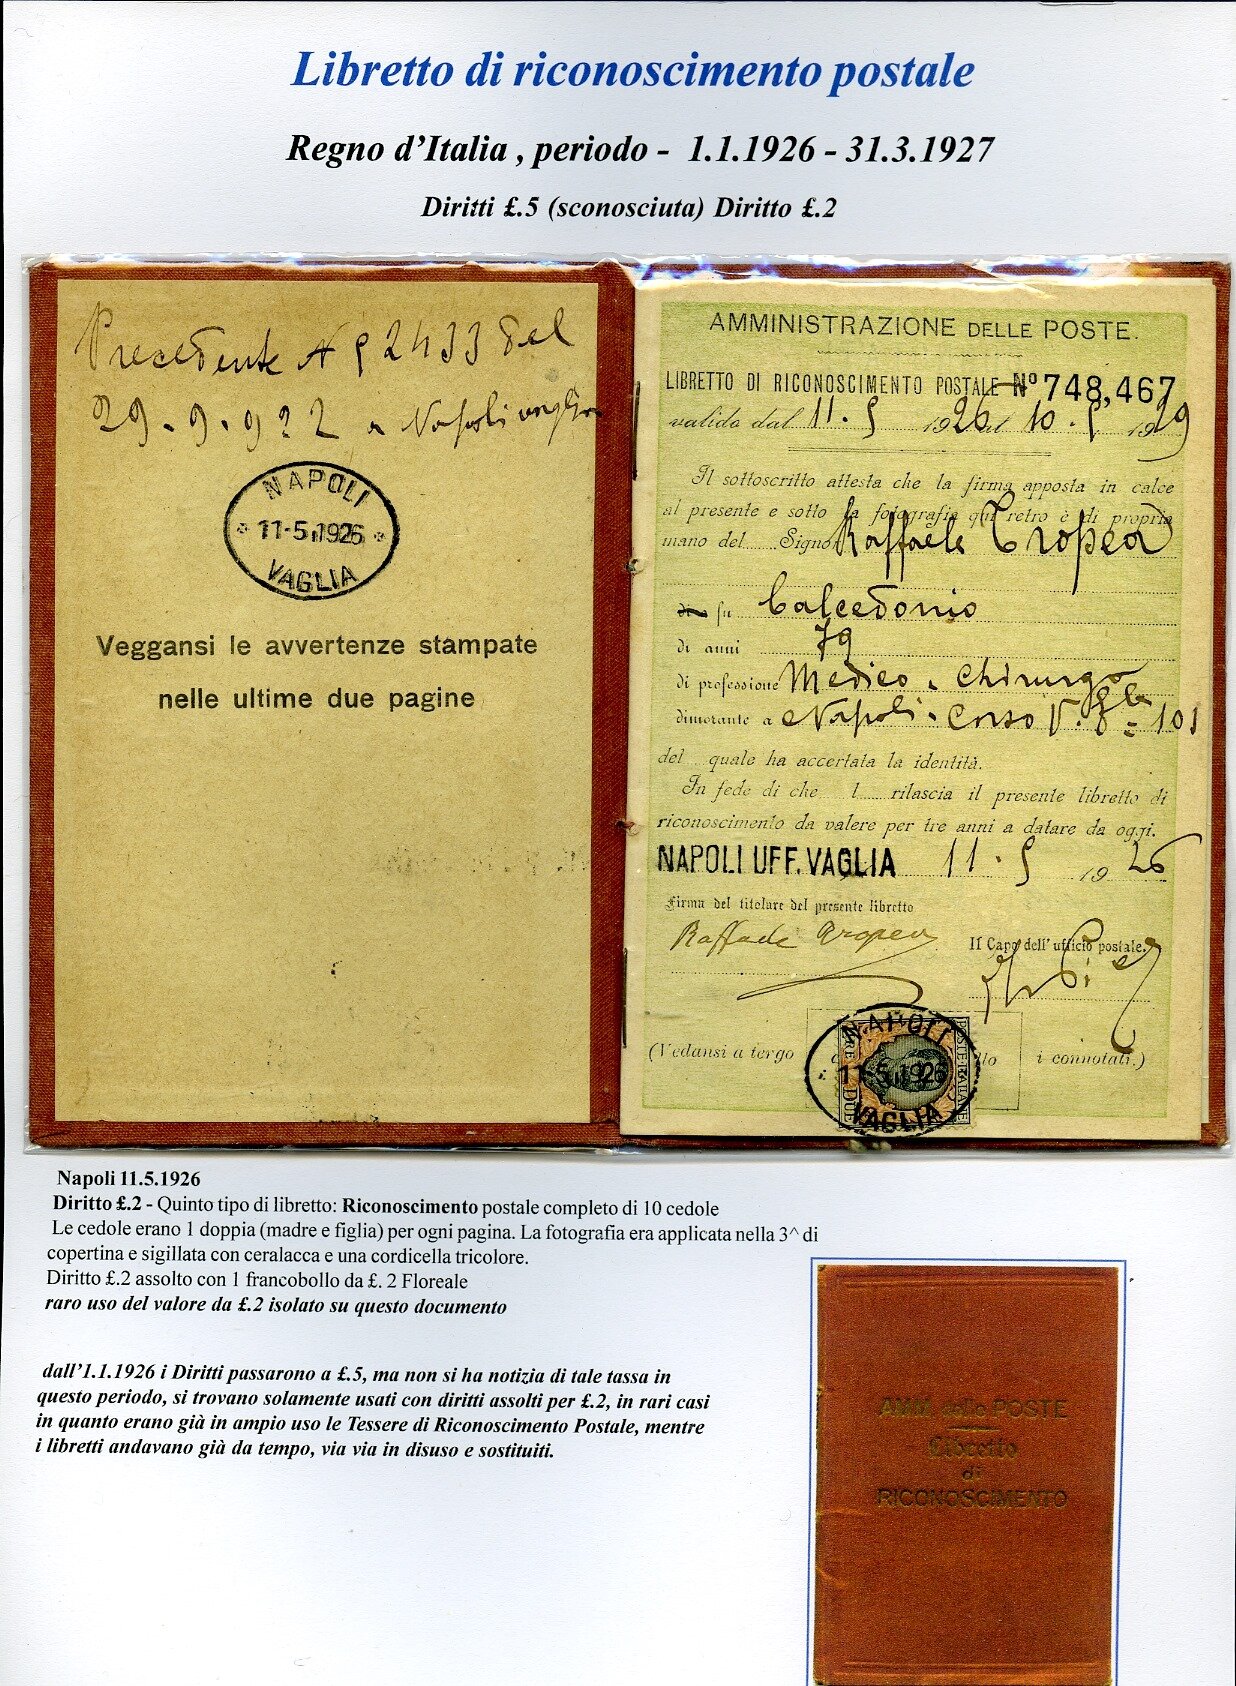 Libretto di riconoscimento postale
Regno d'Italia , periodo - 1.1.1926 - 31.3.1927
Diritti £.5 (sconosciuta) Diritto £.2
Precedente N 92433 del
29.9.922 a Napoli vaglia
NAPOLI
11-5.1926
VAGLIA
Veggansi le avvertenze stampate
nelle ultime due pagine
AMMINISTRAZIONE DELLE POSTE.
LIBRETTO DI RICONOSCIMENTO POSTALE Nº 748,467
valido dal 11.5 1926 al 10.5 1929
Il sottoscritto attesta che la firma apposta in calce
al presente e sotto la fotografia qui retro è di propria
mano del Signor Raffaele Tropea
di fu Calcedonio
di anni 79
di professione Medico chirurgo
dimorante a Napoli Corso V. Ele 101
del quale ha accertata la identità.
In fede di che l rilascia il presente libretto di
riconoscimento da valere per tre anni a datare da oggi.
NAPOLI UFF. VAGLIA 11.5 1926
Firma del titolare del presente libretto
Raffaele Tropea
Il Capo dell'ufficio postale.
(Vedansi a tergo i connotati.)
NAPOLI
11-5.1926
VAGLIA
Napoli 11.5.1926
Diritto £.2 - Quinto tipo di libretto: Riconoscimento postale completo di 10 cedole
Le cedole erano 1 doppia (madre e figlia) per ogni pagina. La fotografia era applicata nella 3^ di
copertina e sigillata con ceralacca e una cordicella tricolore.
Diritto £.2 assolto con 1 francobollo da £. 2 Floreale
raro uso del valore da £.2 isolato su questo documento
dall'1.1.1926 i Diritti passarono a £.5, ma non si ha notizia di tale tassa in
questo periodo, si trovano solamente usati con diritti assolti per £.2, in rari casi
in quanto erano già in ampio uso le Tessere di Riconoscimento Postale, mentre
i libretti andavano già da tempo, via via in disuso e sostituiti.
AMM. delle POSTE
Libretto
di
RICONOSCIMENTO